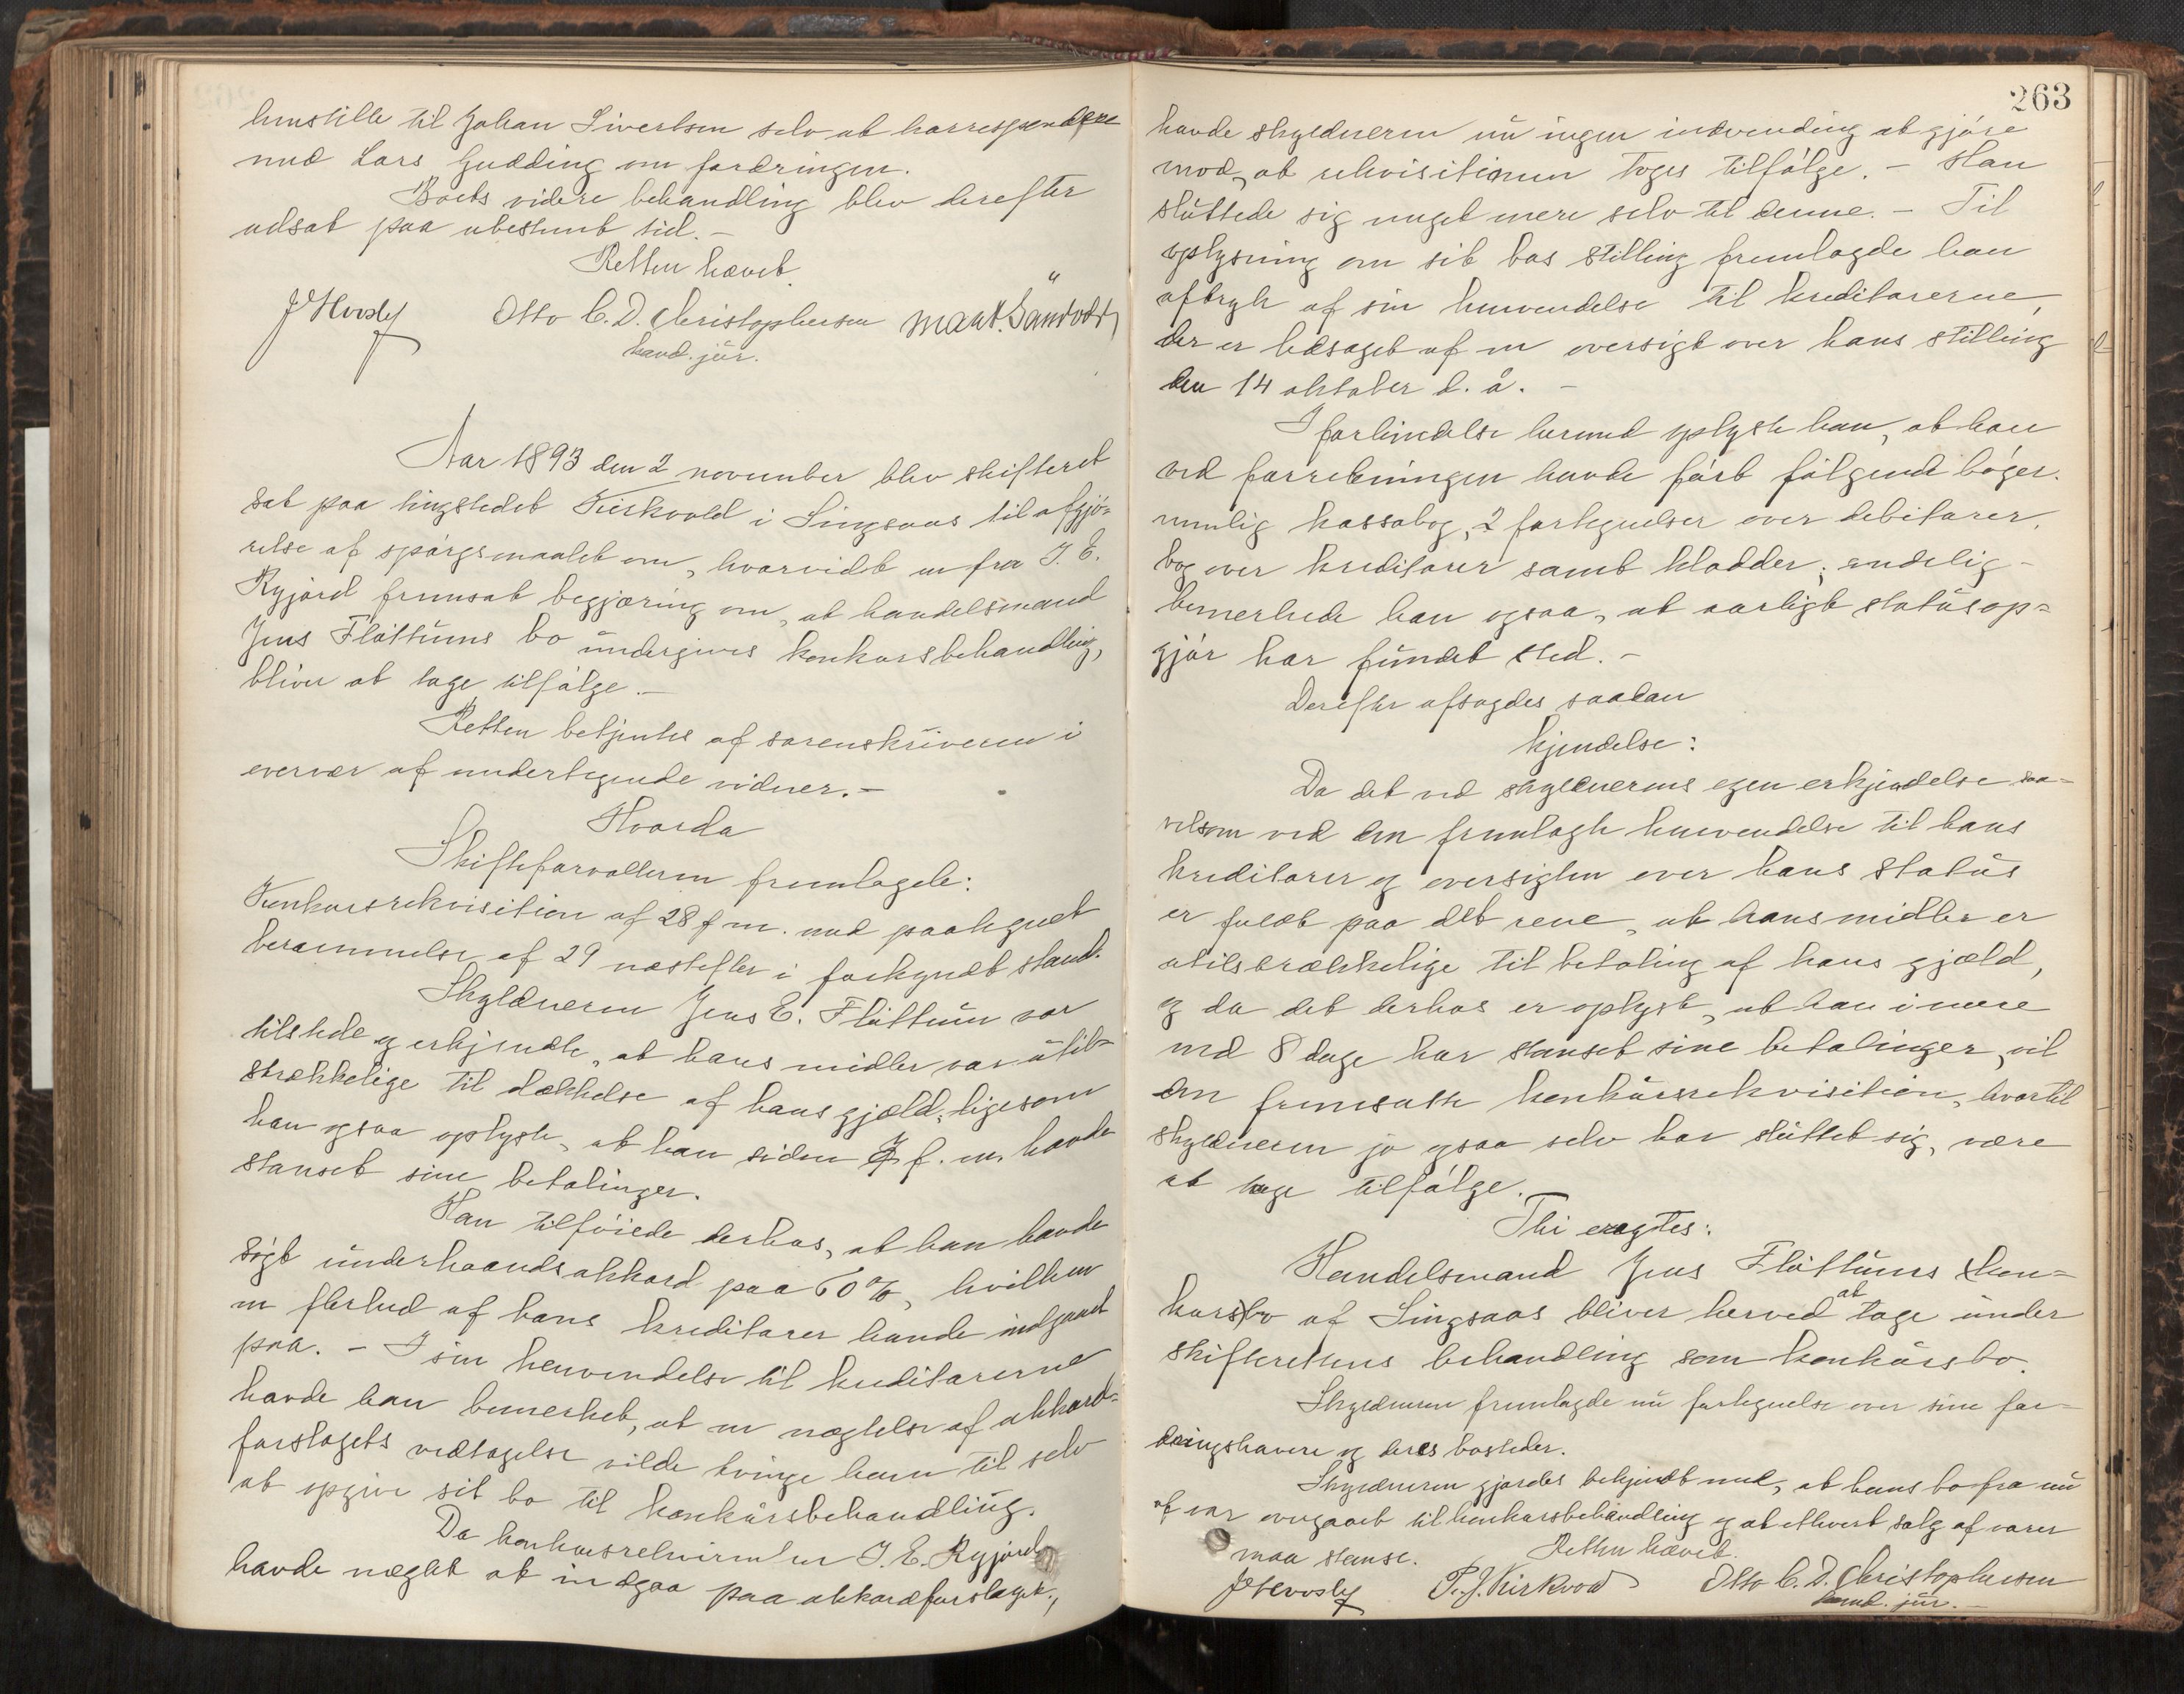 henstille til Johan Sivertsen selv at korrespondere
med Lars Gudding om fordringen.
Boets videre behandling blev derefter
udsat paa ubestemt tid. –
Retten hævet.
Otto C. D. Christophersen
kand. jur.
Aar 1893 den 2 november blev skifteret
sat paa tingstedet Kirkvold i Singsaas til afgjö-
relse af spörgsmaalet om, hvorvidt en fra J. E.
Ryjord fremsat begjæring om, at handelsmand
Jens Flöttums bo undergives konkursbehandling,
bliver at tage tilfölge. –
Retten betjentes af sorenskriveren i
overvær af undertegnede vidner. –
Hvorda
Skifteforvalteren fremlagde:
Konkursrekvisition af 28 f. m. med paategnet
berammelse af 29 næstefter i forkyndt stand.
Skyldneren Jens E. Flöttum var
tilstede og erkjendte, at hans midler var util-
strækkelige til dækkelse af hans gjæld, ligesom
han ogsaa oplyste, at han siden f. m. havde
stanset sine betalinger.
Han tilföiede derhos, at han havde
sögt underhaandsakkord paa 60 %, hvilken
en flerhed af hans kreditorer havde indgaaet
paa. – I sin henvendelse til kreditorerne
havde han bemerket, at en nægtelse af akkord-
forslagets vedtagelse vilde tvinge ham til selv
at opgive sit bo til konkursbehandling.
Da konkursrekvirenten J. E. Ryjord
havde nægtet at indgaa paa akkordforslaget,
263
havde skyldneren nu ingen indvending at gjöre
mod, at rekvisitionen toges tilfölge. – Han
sluttede sig meget mere selv til denne. – Til
oplysning om sit bos stilling fremlagde han
aftryk af sin henvendelse til kreditorerne,
der er ledsaget af en oversigt over hans stilling
den 14 oktober d. å. –
I forbindelse hermed oplyste han, at han
ved forretningen havde fört fölgende böger:
nemlig kassabog, 2 fortegnelser over debitorer,
bog over kreditorer samt kladder; endelig
bemerkede han ogsaa, at aarligt statusop-
gjör har fundet sted. –
Derefter afsagdes saadan
kjendelse:
Da det ved skyldnerens egen erkjendelse saa-
velsom ved den fremlagte henvendelse til hans
kreditorer og oversigten over hans status
er fuldt paa det rene, at hans midler er
utilstrækkelige til betaling af hans gjæld,
og da det derhos er oplyst, at han i mere
end 8 dage har stanset sine betalinger, vil
den fremsatte konkursrekvisition, hvortil
skyldneren jo ogsaa selv har sluttet sig, være
at tage tilfölge.
Thi eragtes:
Handelsmand Jens Flöttums kon-
kursbo af Singsaas bliver herved at tage under
skifterettens behandling som konkursbo.
Skyldneren fremlagde nu fortegnelse over sine for-
dringshavere og deres bosteder.
Skyldneren gjordes bekjendt med, at hans bo fra nu
af var overgaaet til konkursbehandling og at ethvert salg af varer
maa stanse. Retten hævet.
P. J. Kirkvold Otto C. D. Christophersen
kand. jur. –